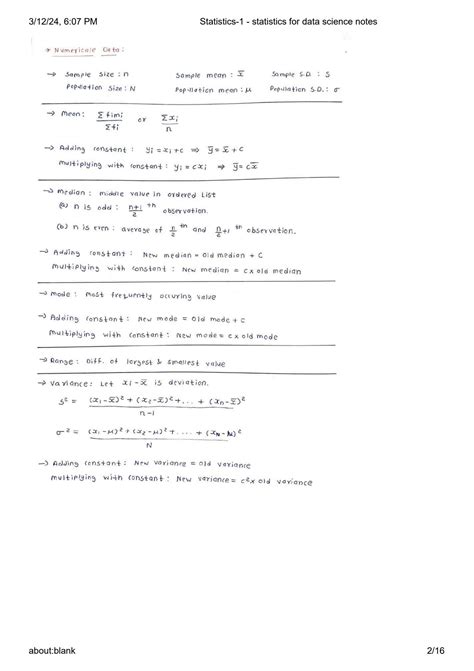 3/12/24, 6:07 PM Statistics-1 - statistics for data science notes
→ Numericale Data:
→ Sample size : n Sample mean : x̅ Sample S.D. : S
Population Size : N Population mean : μ Population S.D. : σ
→ mean: Σ fimi / Σfi or Σxi / n
→ Adding constant : yi = xi + c ⇒ y̅ = x̅ + c
multiplying with constant : yi = cxi ⇒ y̅ = cx̅
→ Median : middle value in ordered List
(a) n is odd : n+1/2 th observation.
(b) n is even : average of n/2 th and n/2+1 th observation.
→ Adding constant : New median = old median + C
multiplying with constant : New median = c x old median
→ mode : most frequently occuring value
→ Adding constant : New mode = old mode + c
multiplying with constant : New mode = c x old mode
→ Range : Diff. of largest & smallest value
→ variance : Let xi - x̅ is deviation.
S² = (x₁ - x̅)² + (x₂ - x̅)² + . . . + (xn - x̅)² / n-1
σ² = (x₁ - μ)² + (x₂ - μ)² + . . . + (xN - μ)² / N
→ Adding constant : New variance = old variance
multiplying with constant : New variance = c² x old variance
about:blank 2/16